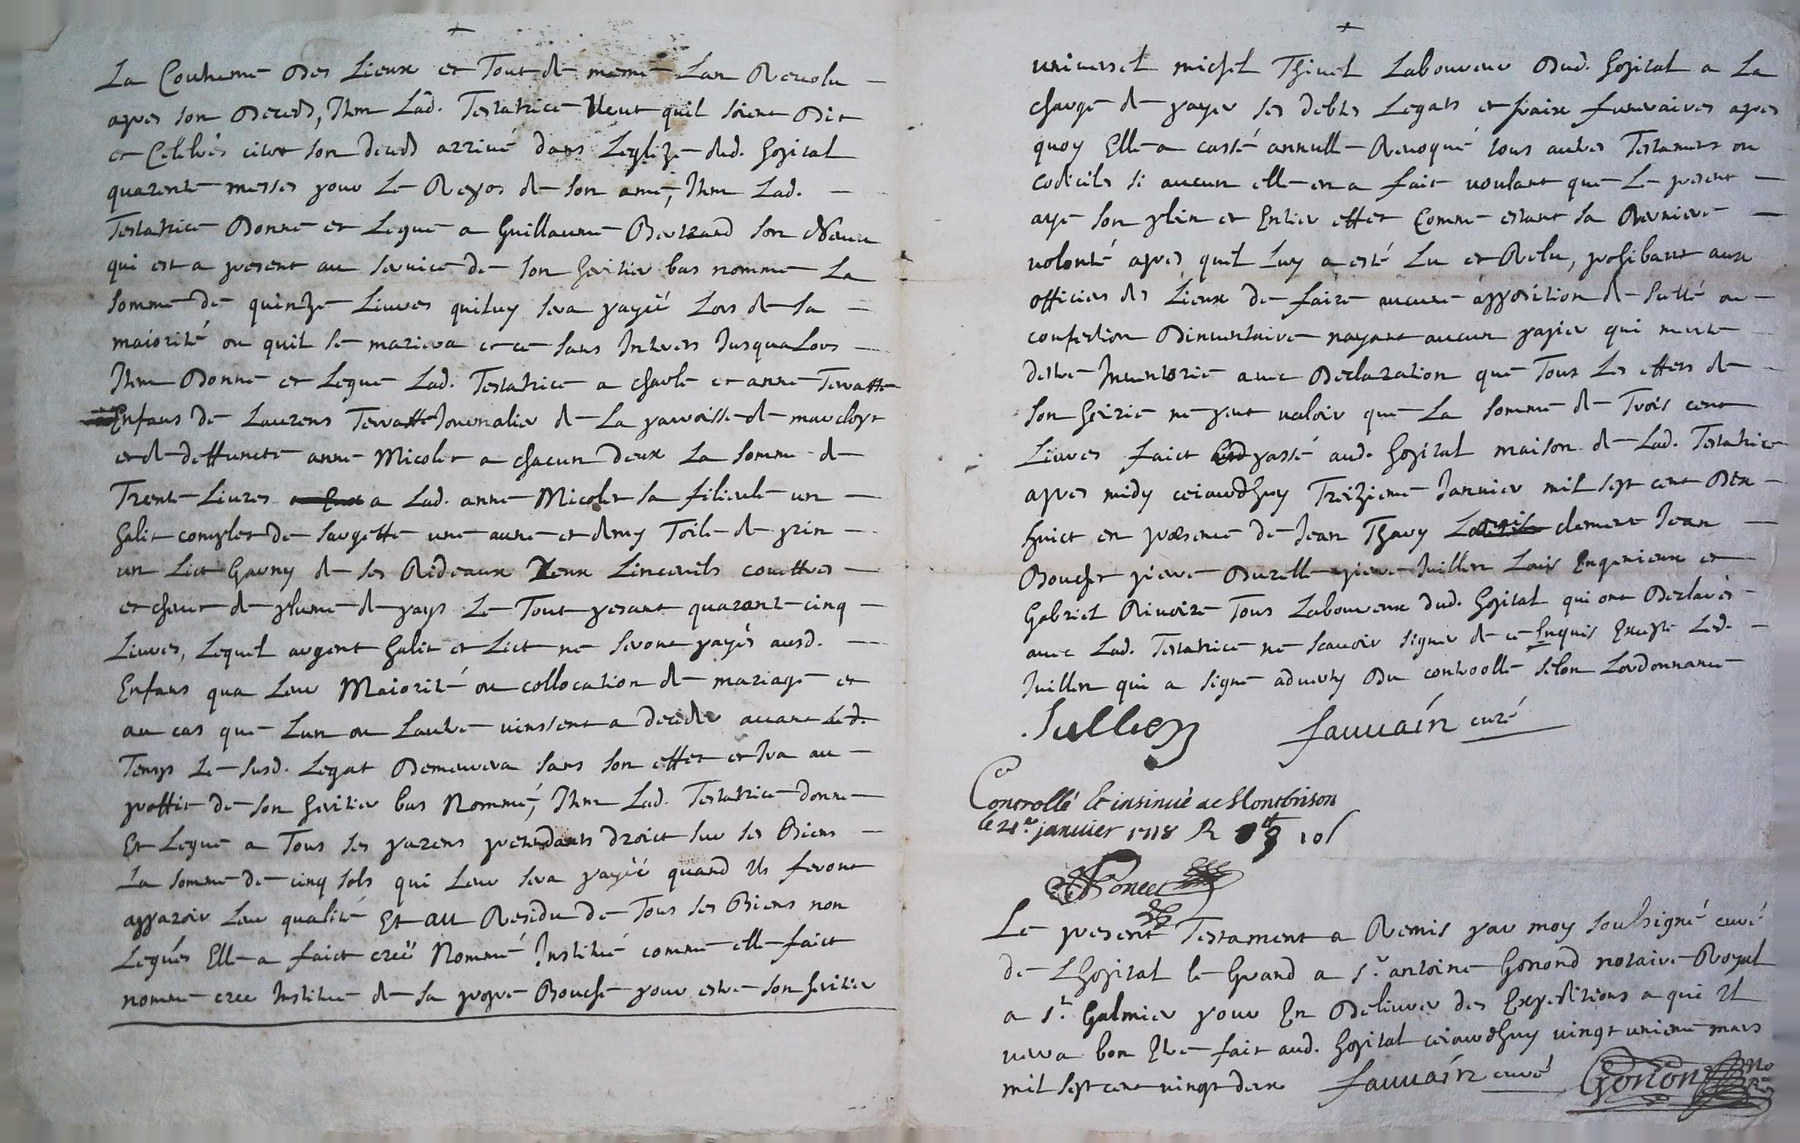 La Coutume des Lieux et Tout de meme Lan Revolu
apres son Deceds, Item Lad. Testatrice Veut quil soient Dit
et Celebrés son deceds arrivé dans Leglize dud. hopital
quarente messes pour Le Repos de son ame, Item Lad.
Testatrice Donne et Legue a Guillaume Bertrand son Neveu
qui est a present au service de son heritier bas nomme La
somme de quinze Livres quiluy sera payéé Lors de sa
maiorité ou quil se mariera et ce sans Interes Jusqua Lors
Item Donne et Legue Lad. Testatrice a charle et anne Terratte
Enfans de Laurens Terratte Journalier de La parroisse de
et de deffuncte anne Micolet a chacun deux La somme de
Trente Livres a Lad. anne Micolet sa filieule un
habit complet de sargette une aune et demy Toile de prin
un Lict Garny de ses Rideaux Deux Linceuils couettres
et chevet de plume de pays Le Tout pesant quarante cinq
Livres, Lequel argent habit et Lict ne seront payés ausd.
Enfans qua Leur Maiorité ou collocation de mariage et
au cas que Lun ou Lautre vinssent a deceder avant Led.
Temps Le susd. Legat Demeurera sans son effet et Ira au
proffit de son heritier bas Nommé, Item Lad. Testatrice donne
Et Legue a Tous ses parens pretendants droict sur ses Biens
La somme de cinq sols qui Leur sera payéé quand Ils feront
apparoir Leur qualité Et au Residu de Tous ses Biens non
Legués Elle a faict creé Nommé Institué comme elle faict
nomme cree Institue de sa propre Bouche pour estre son heritier
universel michel Thivel Laboureur Dud. hopital a La
charge de payer ses debtes Legats et fraix funeraires apres
quoy Elle a cassé annullé Revoqué tous autres Testamens ou
codiciles si aucun elle en a fait voulant que Le present
aye son plein et Entier effet Comme estant sa Derniere
volonté apres quil Luy a esté Lu et Relu, prohibant aux
officiers des Lieux de faire aucune apposition de scellé ou
confection Dinventaire nayant aucun papier qui merite
destre Inventorié avec Declaration que Tous Les effets de
son heirie ne peut valoir que La somme de Trois cent
Livres faict passé aud. hopital maison de Lad. Testatrice
apres midy cejourdhuy Treizieme Janvier mil sept cent Dix
huict en presence de Jean Thavy clement Jean
Bouchet pierre Durelle pierre Juillien Louis Engenieux et
Gabriel Rivoire Tous Laboureux dud. hopital qui ont Declarés
avec Lad. Testatrice ne scavoir signer de ce Enquis Excepte Led.
Juillien qui a signe adverty Du controolle selon Lordonnance
Jullien fauvain curé
Controllé et insinué a Montbrison
le 21me janvier 1718 R 10s
Poncet
Le present Testament a Remis par moy soubsigné curé
de Lhopital le Grand a Sr. antoine Gonond notaire Royal
a St. Galmier pour En Delivrer des Expeditions a qui Il
verra bon Etre fait aud. hopital cejourdhuy vingt unieme mars
mil sept cent vingt deux fauvain curé Gonon